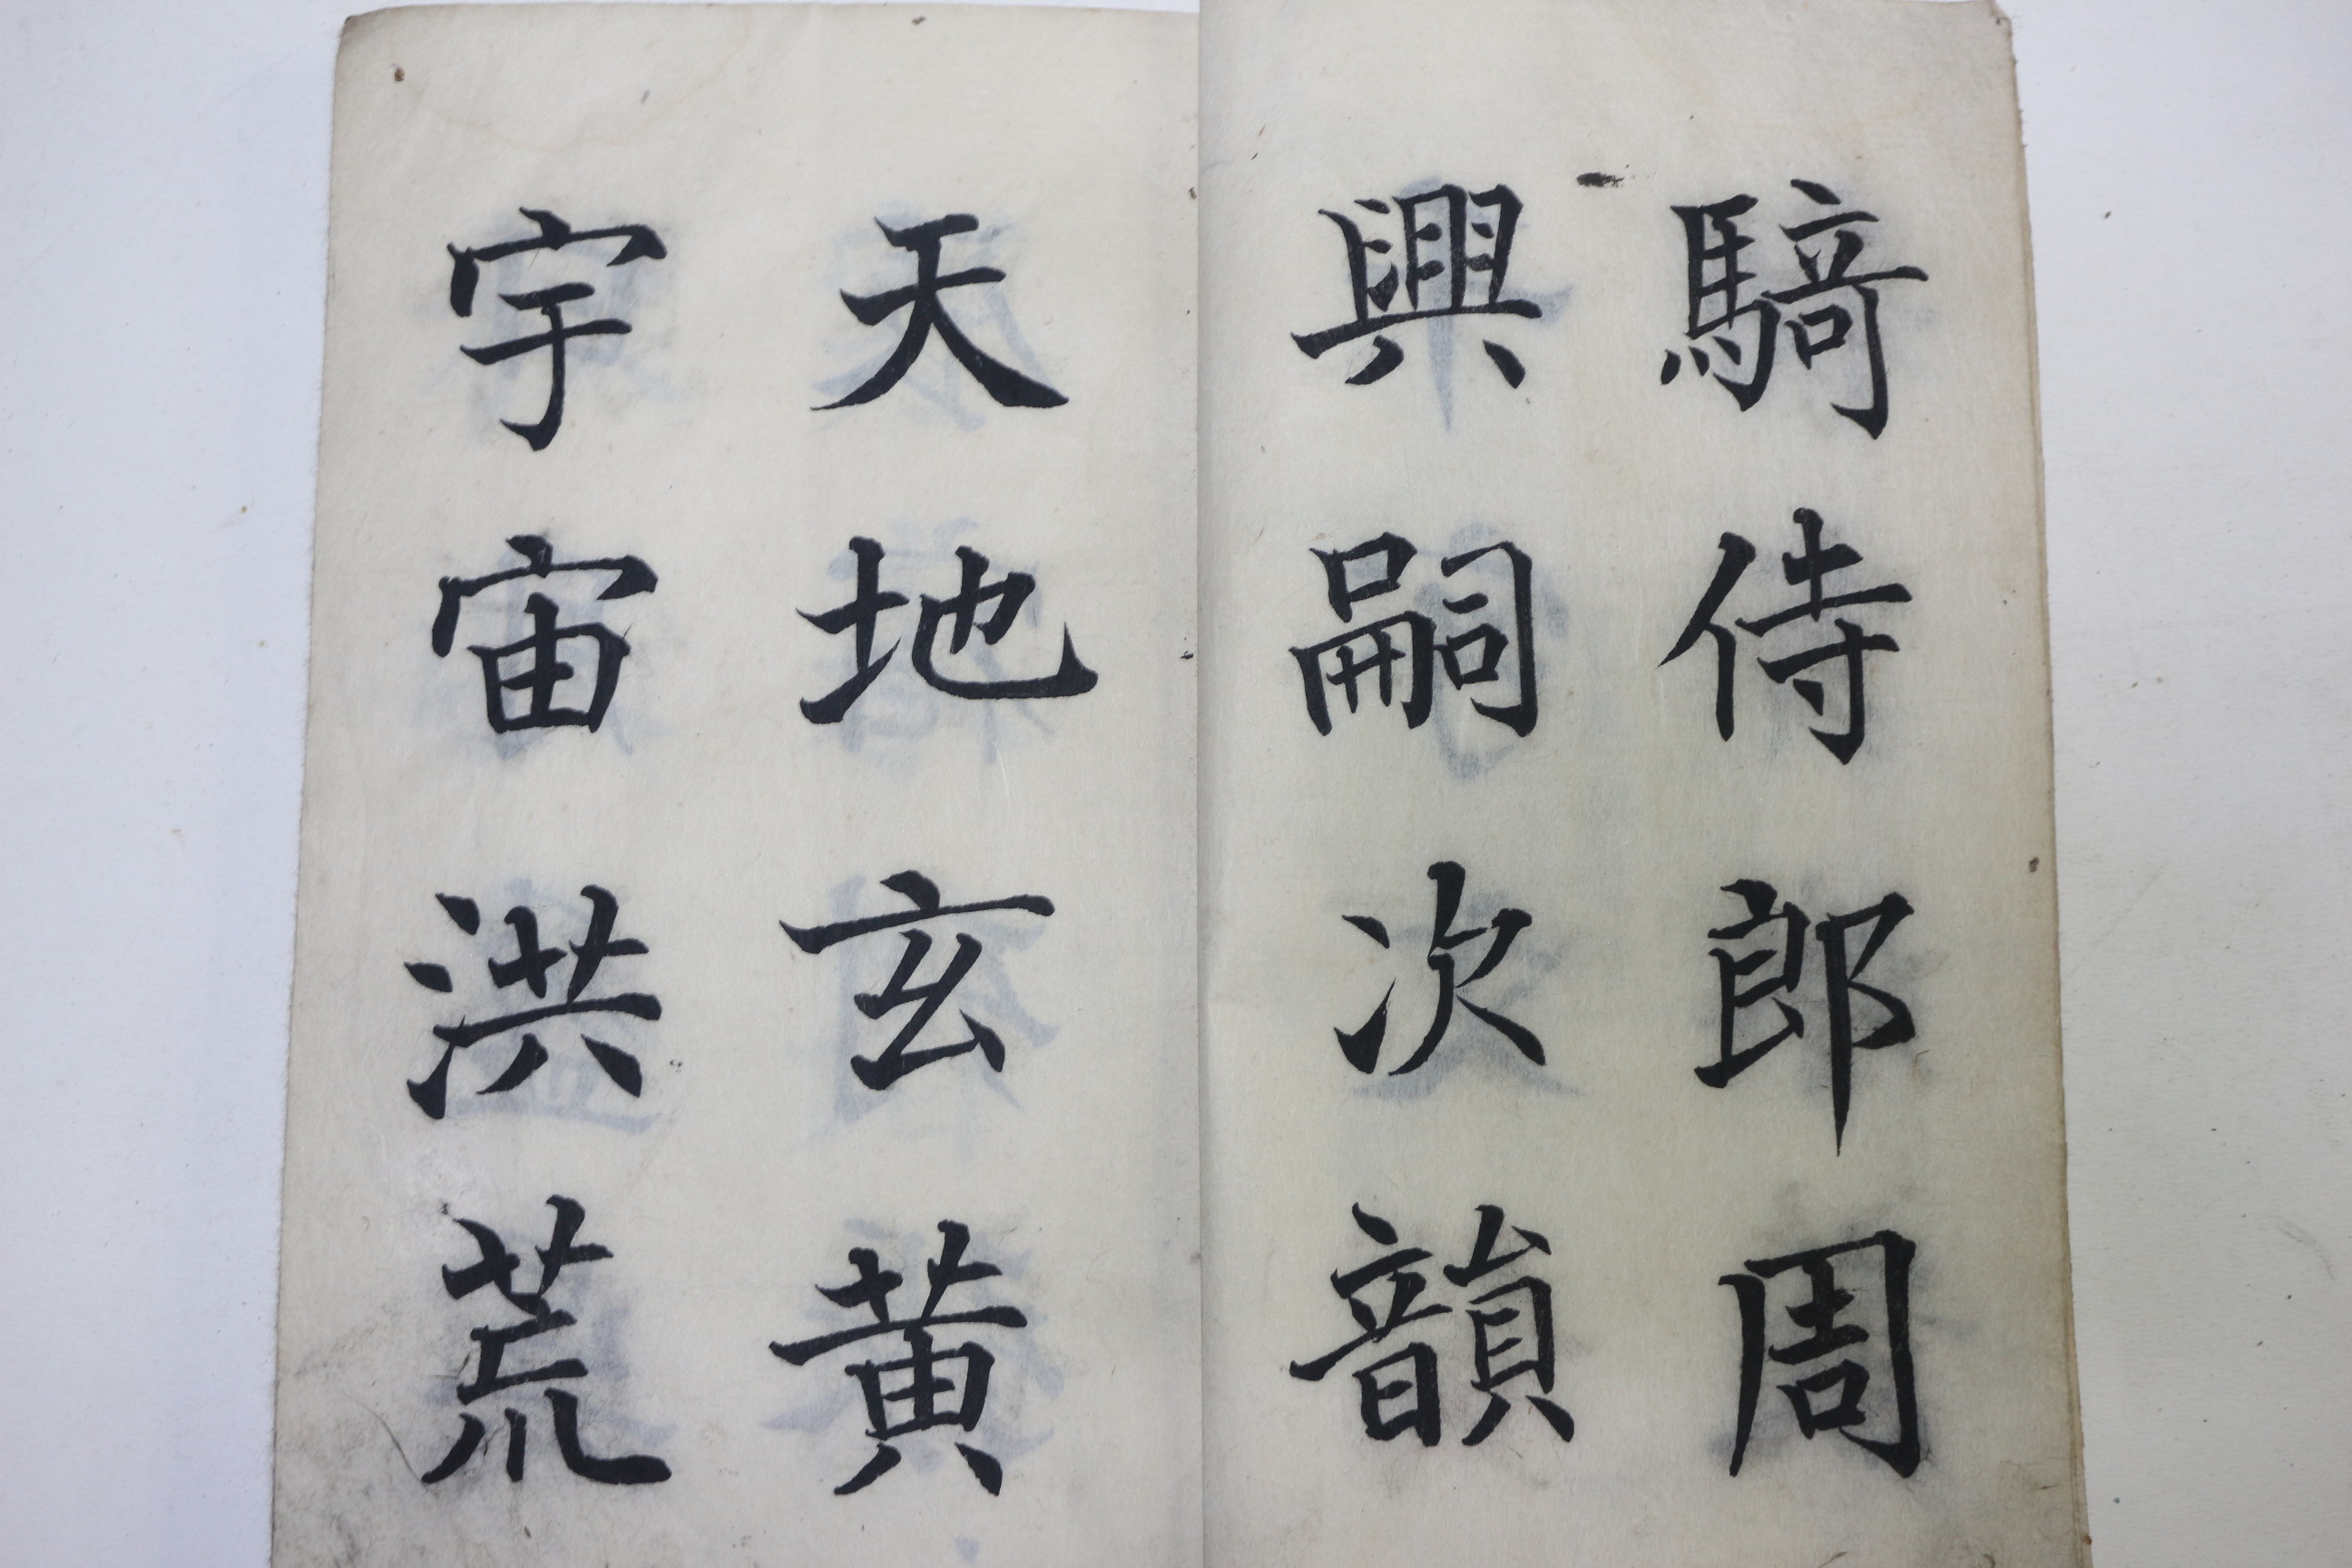 騎侍郎周
興嗣次韻
天地玄黃
宇宙洪荒